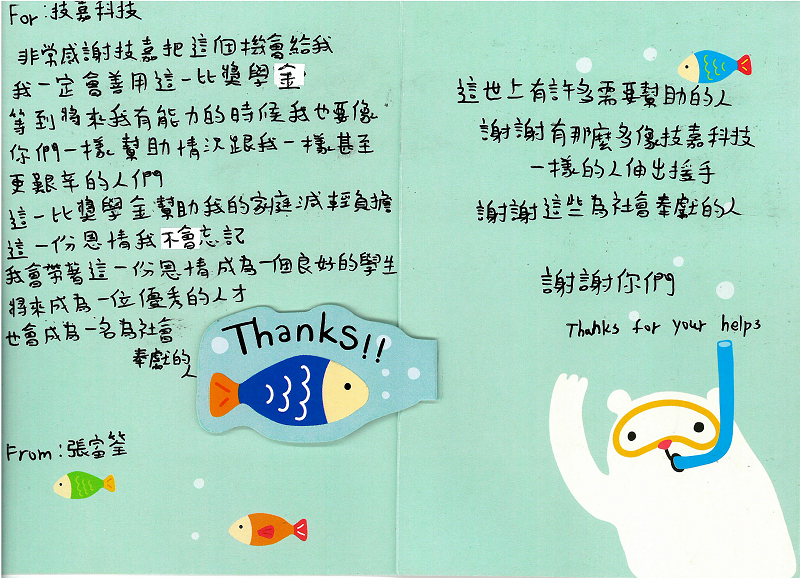 For:技嘉科技
非常感謝技嘉把這個機會給我
我一定會善用這一比獎學金
等到將來我有能力的時候我也要像
你們一樣幫助情況跟我一樣甚至
更艱辛的人們
這一比獎學金幫助我的家庭減輕負擔
這一份恩情我不會忘記
我會帶著這一份恩情成為一個良好的學生
將來成為一位優秀的人才
也會成為一名為社會
奉獻的
人
From:張富筌
Thanks!!
這世上有許多需要幫助的人
謝謝有那麼多像技嘉科技
一樣的人伸出援手
謝謝這些為社會奉獻的人
謝謝你們
Thanks for your helps